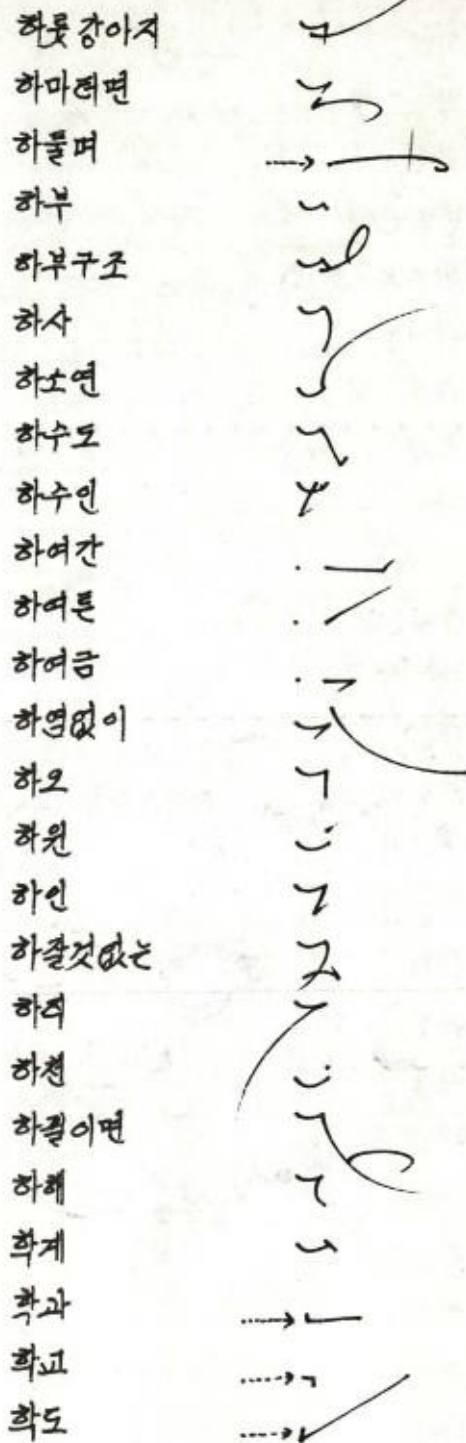 하룻강아지
하마터면
하물며
하부
하부구조
하사
하소연
하수도
하수인
하여간
하여튼
하여금
하염없이
하오
하원
하인
하잘것없는
하직
하천
하필이면
하해
학계
학과
학교
학도